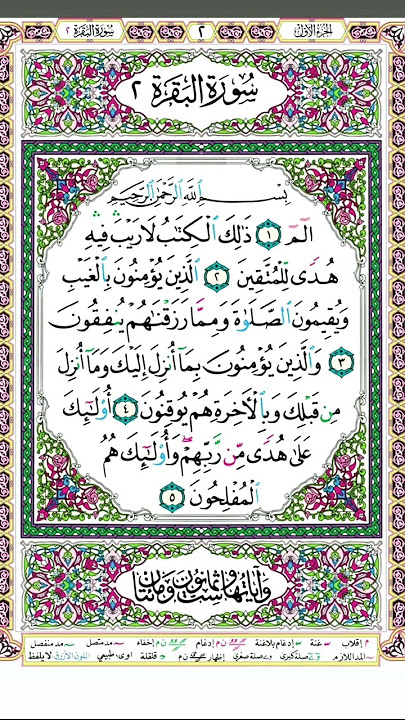 الجزء الأول ٢ سورة البقرة ٢
سُورَةُ البَقَرَةِ ٢
بِسْمِ اللَّهِ الرَّحْمَٰنِ الرَّحِيمِ
الٓمٓ ١ ذَٰلِكَ ٱلْكِتَٰبُ لَا رَيْبَ ۛ فِيهِ ۛ
هُدًى لِّلْمُتَّقِينَ ٢ ٱلَّذِينَ يُؤْمِنُونَ بِٱلْغَيْبِ
وَيُقِيمُونَ ٱلصَّلَوٰةَ وَمِمَّا رَزَقْنَٰهُمْ يُنفِقُونَ
٣ وَٱلَّذِينَ يُؤْمِنُونَ بِمَآ أُنزِلَ إِلَيْكَ وَمَآ أُنزِلَ
مِن قَبْلِكَ وَبِٱلْأَخِرَةِ هُمْ يُوقِنُونَ ٤ أُو۟لَٰٓئِكَ
عَلَىٰ هُدًى مِّن رَّبِّهِمْ ۖ وَأُو۟لَٰٓئِكَ هُمُ
ٱلْمُفْلِحُونَ ٥
وآياتها ست وثمانون ومائتان
م إقلاب غنة إدغام بلاغنة ن م إدغام ن م إخفاء مد متصل مد منفصل
المد اللازم صلة كبرى وے صلة صغرى إظهار ن م قلقلة اوى، طبيعي اللون الأزرق، لايلفظ